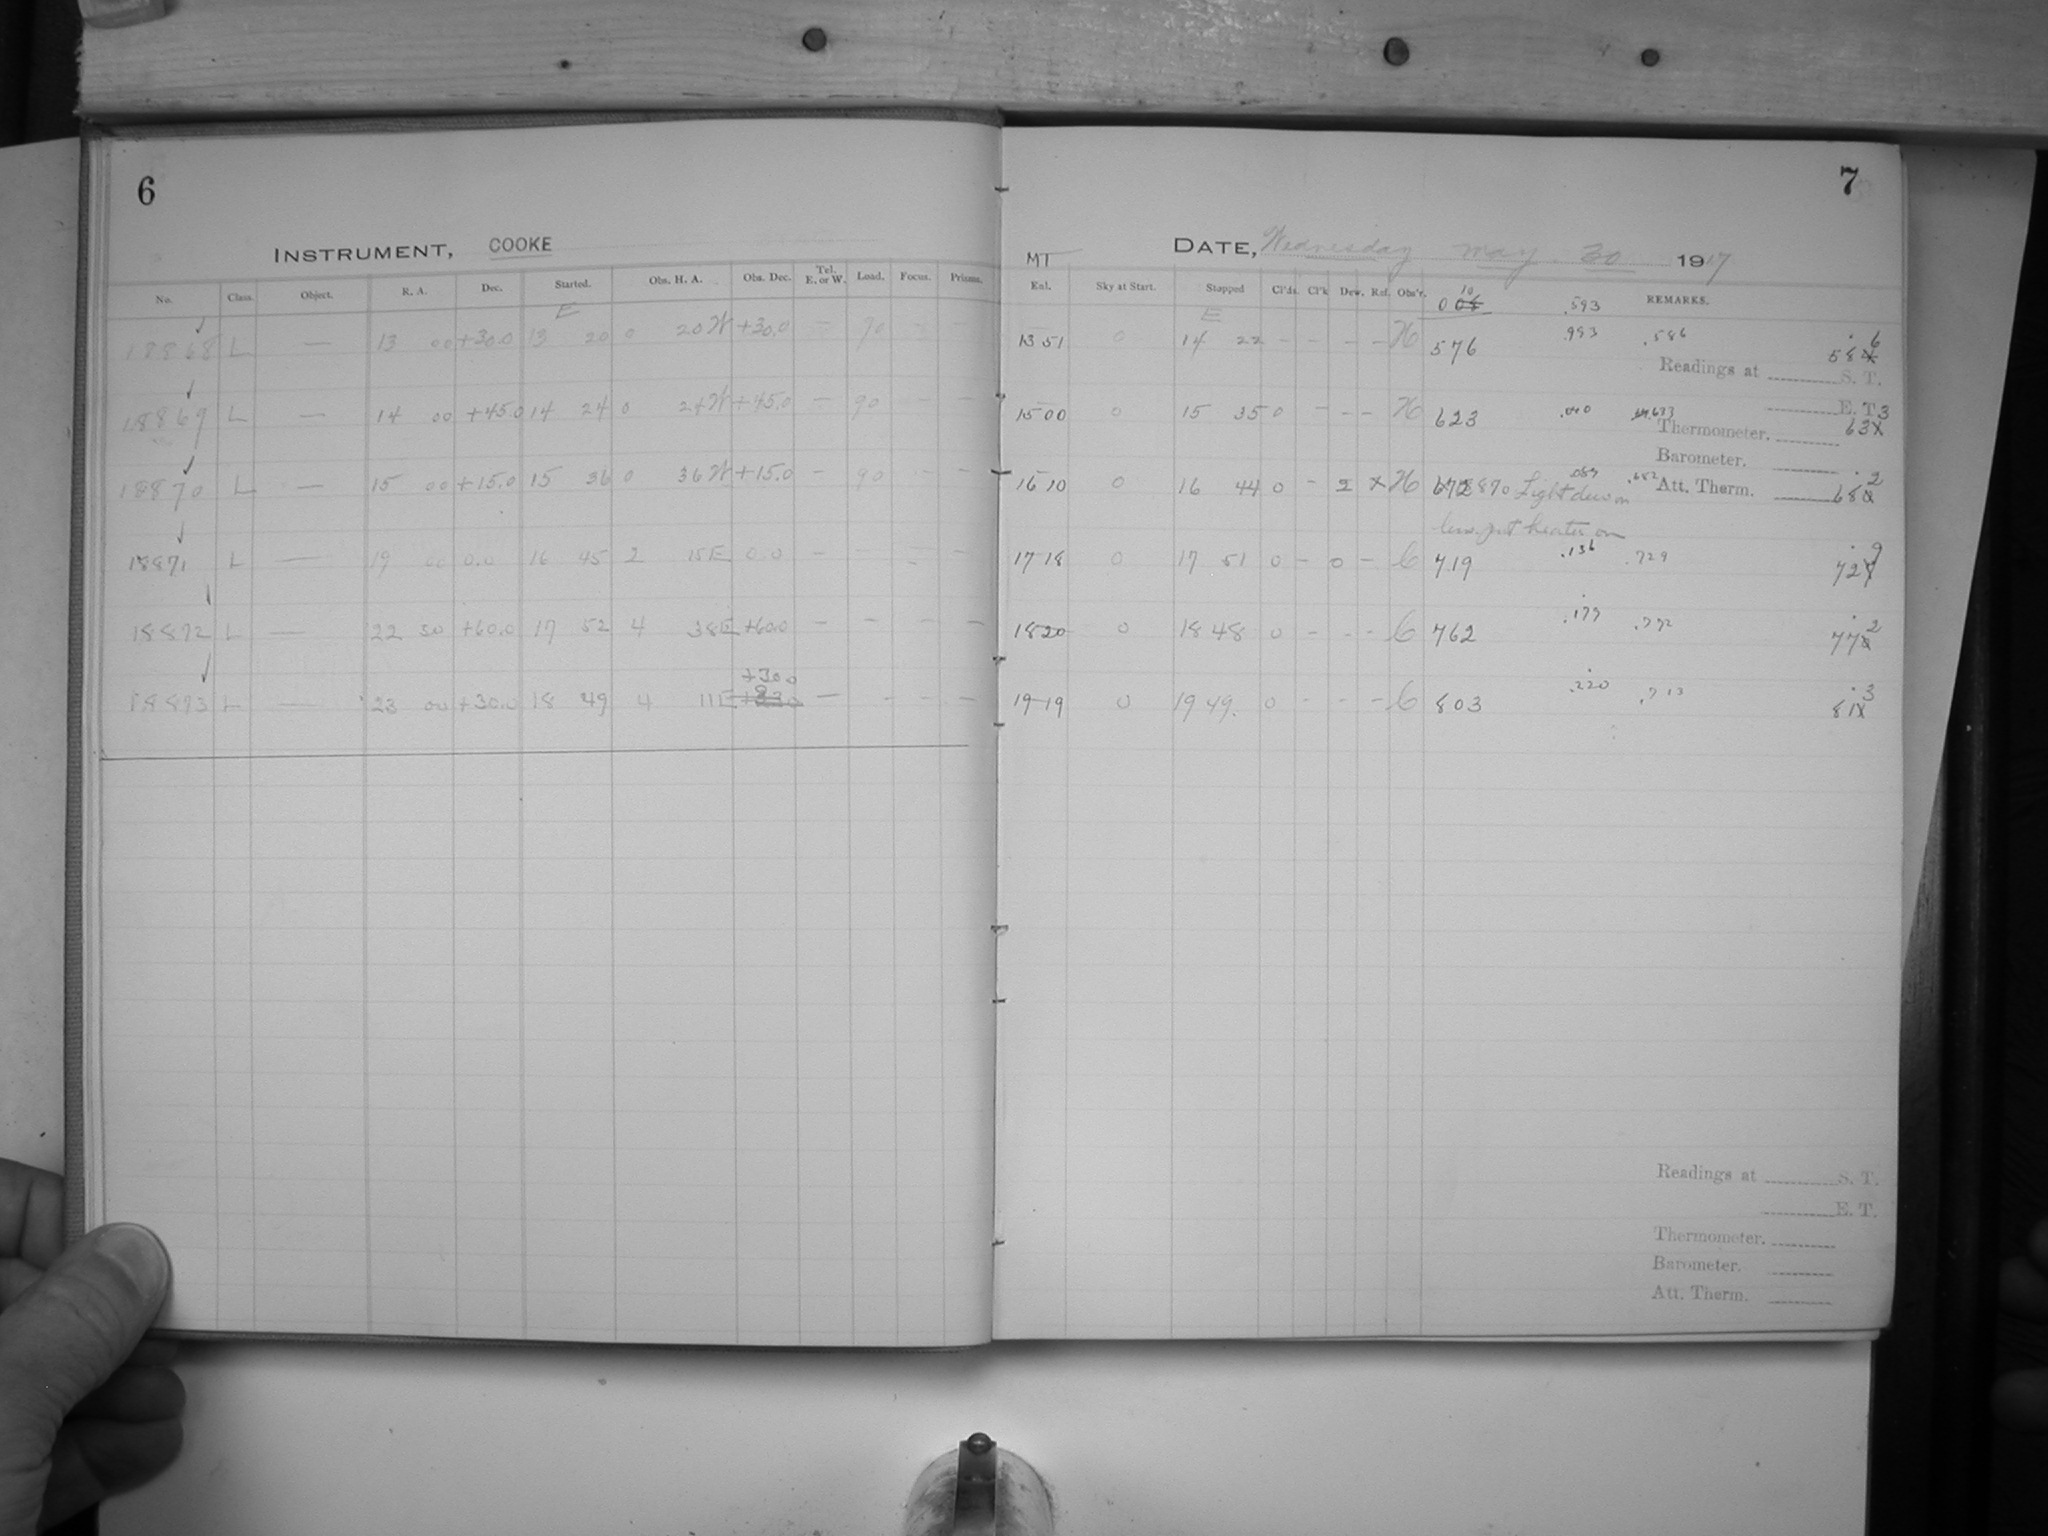 6
INSTRUMENT, COOKE
No. Class. Object. R. A. Dec. Started. Obs. H. A. Obs. Dec. Tel. E. or W. Load. Focus. Prisms.
E
18868 L — 13 00 +30.0 13 20 0 20 W +30.0 — 90 — —
18869 L — 14 00 +45.0 14 24 0 24 W +45.0 — 90 — —
18870 L — 15 00 +15.0 15 36 0 36 W +15.0 — 90 — —
18871 L — 19 00 0.0 16 45 2 15 E 0.0 — — — —
18872 L — 22 30 +60.0 17 52 4 38 E +60.0 — — — —
+30.0
18873 L — 23 00 +30.0 18 49 4 11 E — — — —
7
DATE, Wednesday May 30 1917
MT
Enl. Sky at Start. Stopped Cl'ds. Cl'k Dew. Ref. Obs'r. REMARKS.
10
0 .593
E
13 51 0 14 22 — — — — H 576 .993 .586 586
Readings at S. T.
E. T.
15 00 0 15 35 0 — — — H 623 .040 .633 633
Thermometer.
Barometer.
16 10 0 16 44 0 — 2 x H 672 870 Light dew on .089 .682 682
Att. Therm.
lens, put heater on
17 18 0 17 51 0 — 0 — C 719 .136 .729 729
18 20 0 18 48 0 — — — C 762 .179 .772 772
19 19 0 19 49. 0 — — — C 803 .220 .713 813
Readings at S. T.
E. T.
Thermometer.
Barometer.
Att. Therm.